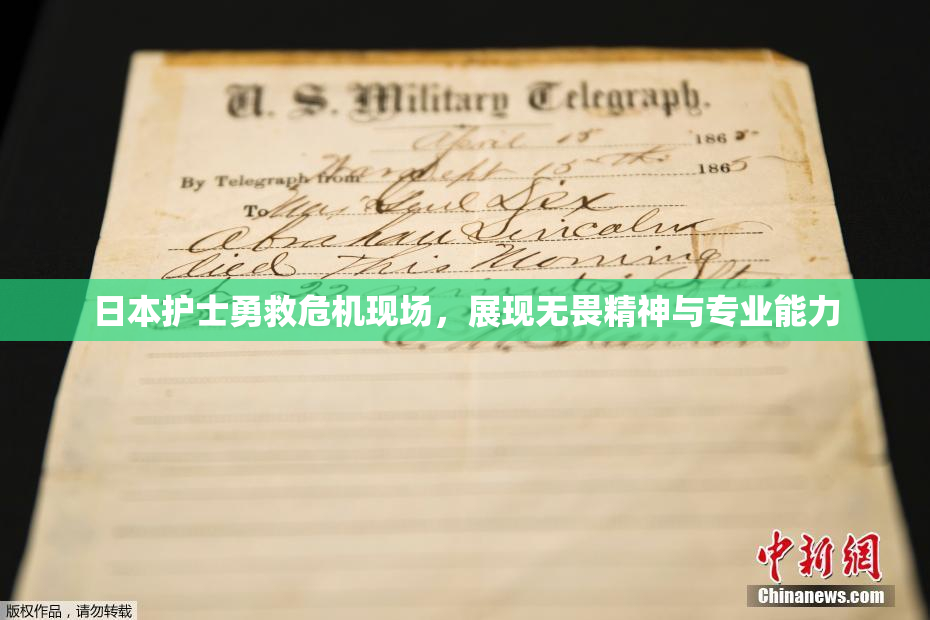 U. S. Military Telegraph.
April 15 1865
By Telegraph from War Dept 15th 1865
To Maj Genl Dix
Abraham Lincoln
died This Morning
22 minutes after
日本护士勇救危机现场，展现无畏精神与专业能力
E. M. Stanton
中新网
Chinanews.com
版权作品，请勿转载